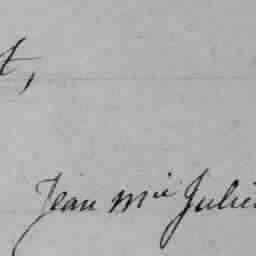 t,
Jean Mie Julie